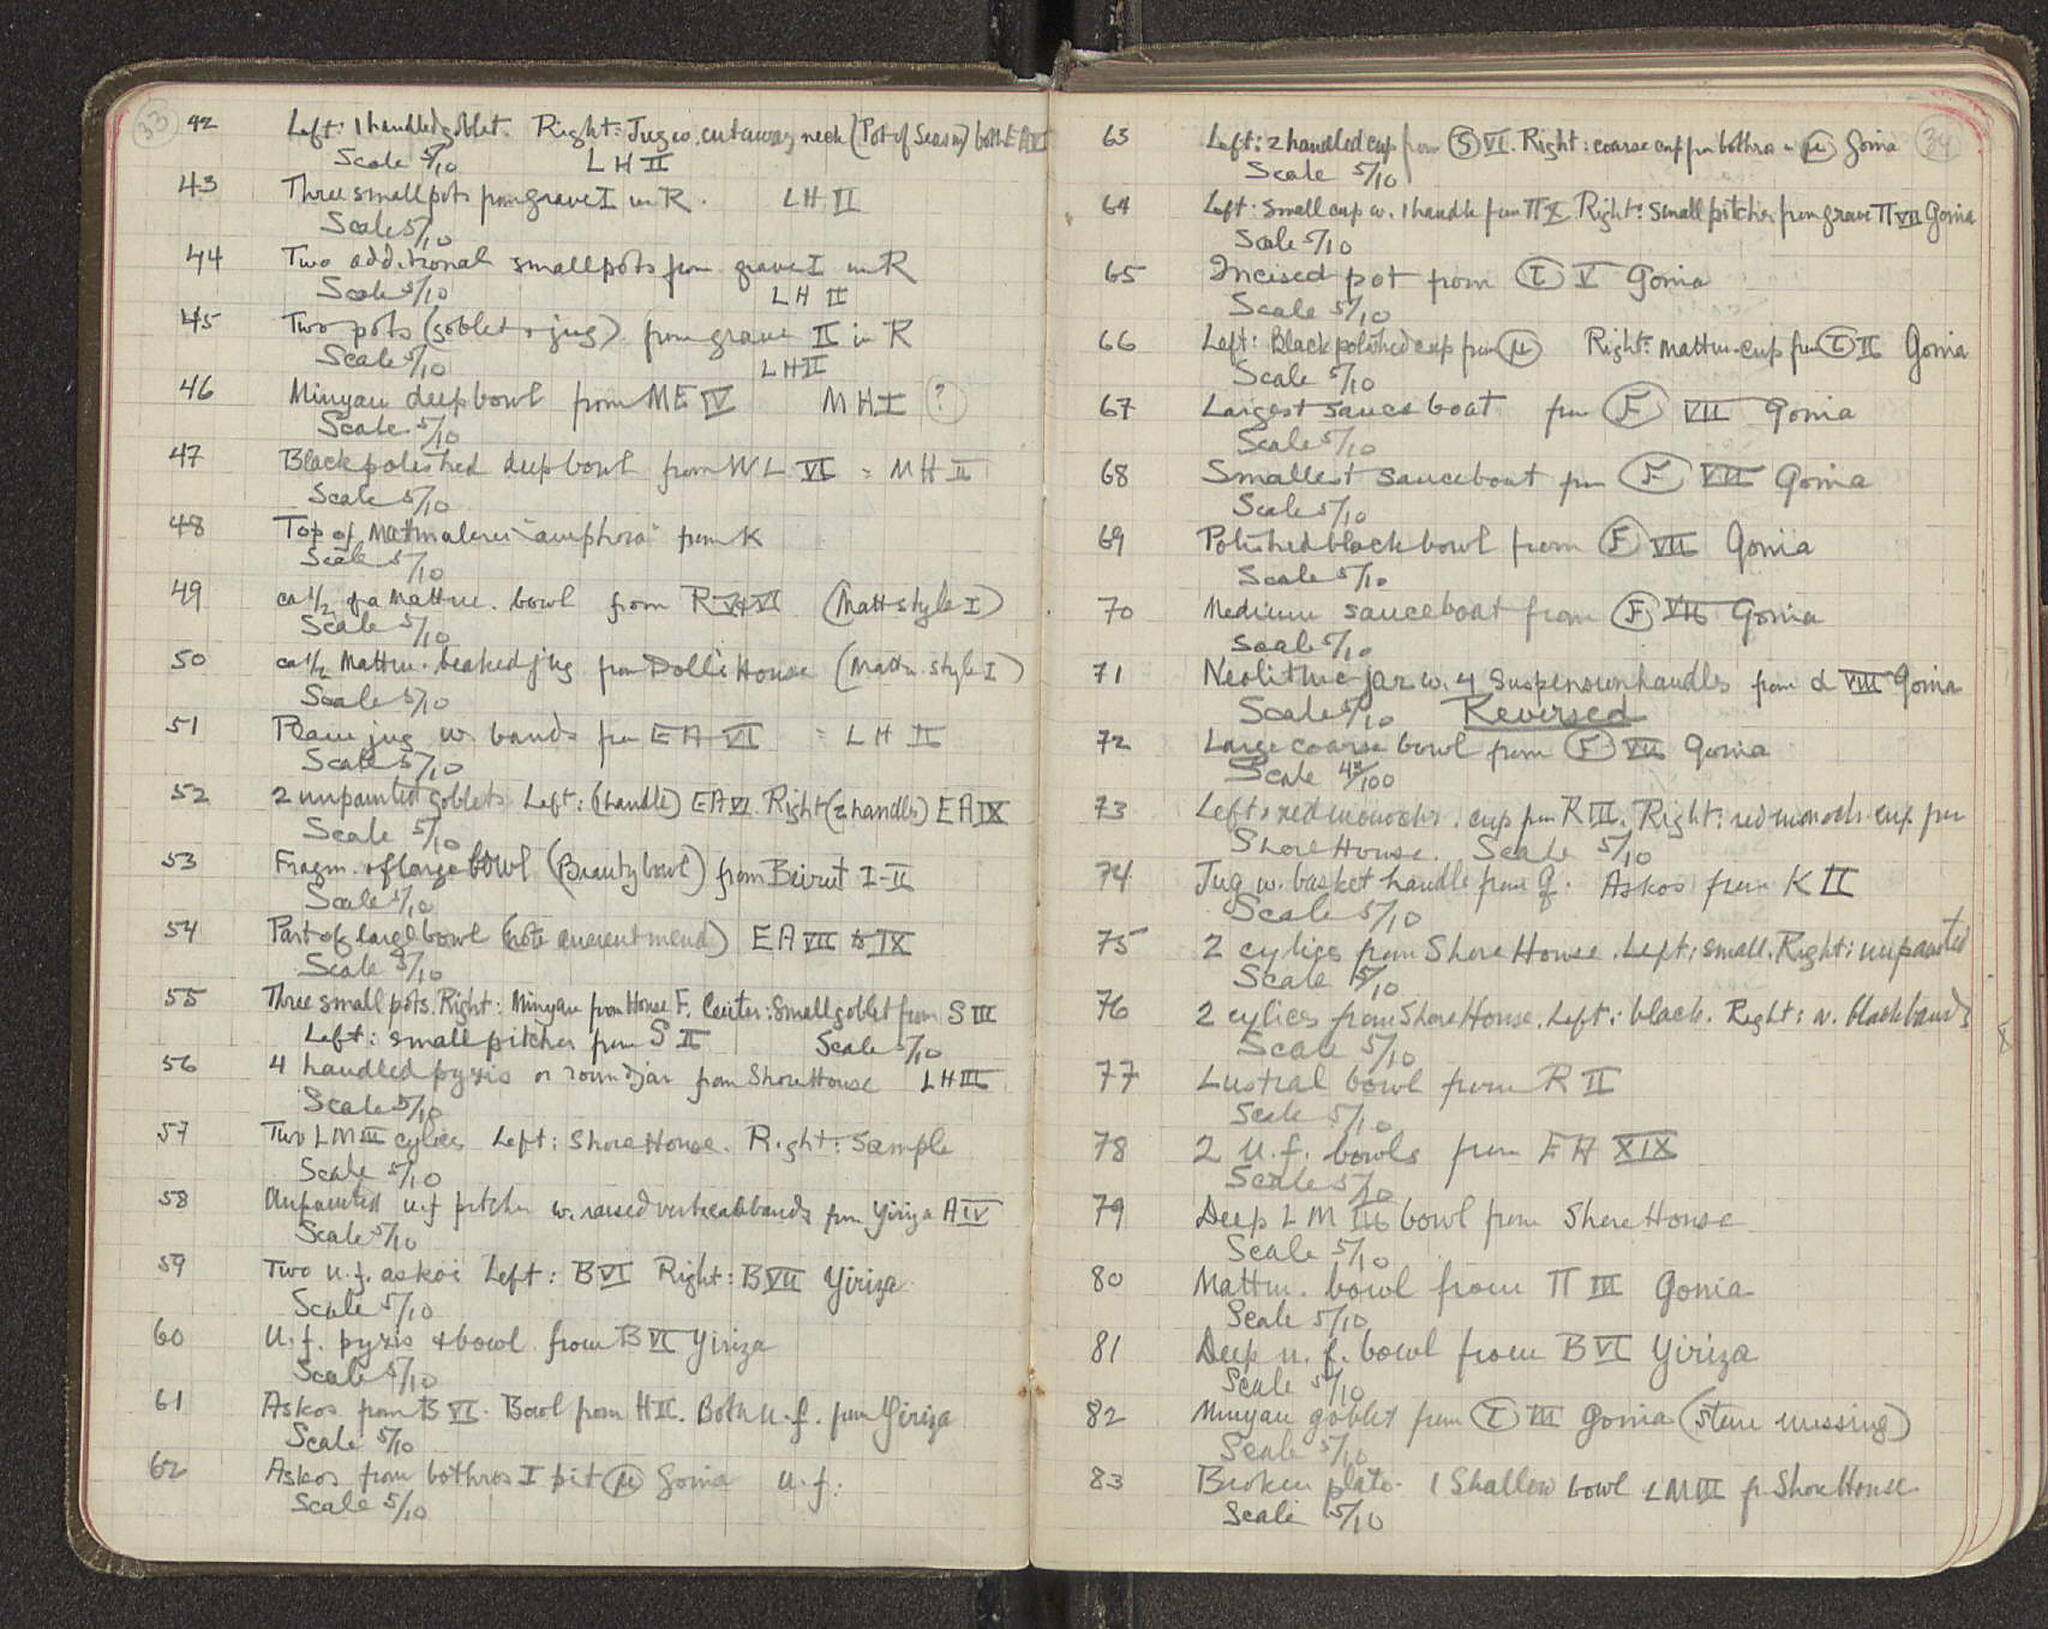 33
42 Left: 1 handled goblet. Right: Jug w. cutaway neck (Pot of Season) both EA VI
Scale 5/10 LH II
43 Three small pots from grave I in R. LH II
Scale 5/10
44 Two additional small pots from grave I in R
Scale 5/10 LH II
45 Two pots (goblet + jug) from grave II in R
Scale 5/10 LH II
46 Minyan deep bowl from ME IV MH I (?)
Scale 5/10
47 Black polished deep bowl from WL VI = MH II
Scale 5/10
48 Top of Mattmalerei "amphora" from K
Scale 5/10
49 ca 1/2 of a Mattm. bowl from R V+VI (Matt style I)
Scale 5/10
50 ca 1/2 Mattm. beaked jug from Dolli House (Mattm. style I)
Scale 5/10
51 Plain jug w. bands from EA VI = LH II
Scale 5/10
52 2 unpainted goblets Left: (1 handle) EA VI. Right (2 handles) EA IX
Scale 5/10
53 Fragm. of large bowl (Beauty bowl) from Beirut I-II
Scale 5/10
54 Part of large bowl (note ancient mend) EA VIII to IX
Scale 5/10
55 Three small pots. Right: Minyan from House F. Center: Small goblet from S III
Left: small pitcher from S II Scale 5/10
56 4 handled pyxis or round jar from Shore House LH III
Scale 5/10
57 Two LM III cylices Left: Shore House. Right: Sample
Scale 5/10
58 Unpainted u.f. pitcher w. raised vertical bands from Yiriza A IV
Scale 5/10
59 Two u.f. askoi Left: B VI Right: B VII Yiriza
Scale 5/10
60 U.f. pyxis + bowl from B VI Yiriza
Scale 5/10
61 Askos from B VI. Bowl from H II. Both u.f. from Yiriza
Scale 5/10
62 Askos from bothros I pit (μ) Gonia u.f.
Scale 5/10
34
63 Left: 2 handled cup from (S) VI. Right: coarse cup from bothros in (μ) Gonia
Scale 5/10
64 Left: Small cup w. 1 handle from Π X Right: small pitcher from grave Π VII Gonia
Scale 5/10
65 Incised pot from (I) V Gonia
Scale 5/10
66 Left: Black polished cup from (μ) Right: Mattm. cup from (I) II Gonia
Scale 5/10
67 Largest sauce boat from (F) VII Gonia
Scale 5/10
68 Smallest sauceboat from (F) VII Gonia
Scale 5/10
69 Polished black bowl from (F) VII Gonia
Scale 5/10
70 Medium sauceboat from (F) VII Gonia
Scale 5/10
71 Neolithic jar w. 4 suspension handles from α VIII Gonia
Scale 5/10 Reversed
72 Large coarse bowl from (F) VII Gonia
Scale 43/100
73 Left: red monochr. cup from R III. Right: red monoch. cup from
Shore House. Scale 5/10
74 Jug w. basket handle from Q. Askos from K II
Scale 5/10
75 2 cylices from Shore House. Left: small. Right: unpainted
Scale 5/10
76 2 cylices from Shore House. Left: black. Right: w. black bands
Scale 5/10
77 Lustral bowl from R II
Scale 5/10
78 2 u.f. bowls from EA XIX
Scale 5/10
79 Deep LM III bowl from Shore House
Scale 5/10
80 Mattm. bowl from Π III Gonia
Scale 5/10
81 Deep u.f. bowl from B VI Yiriza
Scale 5/10
82 Minyan goblet from (I) III Gonia (stem missing)
Scale 5/10
83 Broken plate. 1 Shallow bowl LM III fr Shore House
Scale 5/10